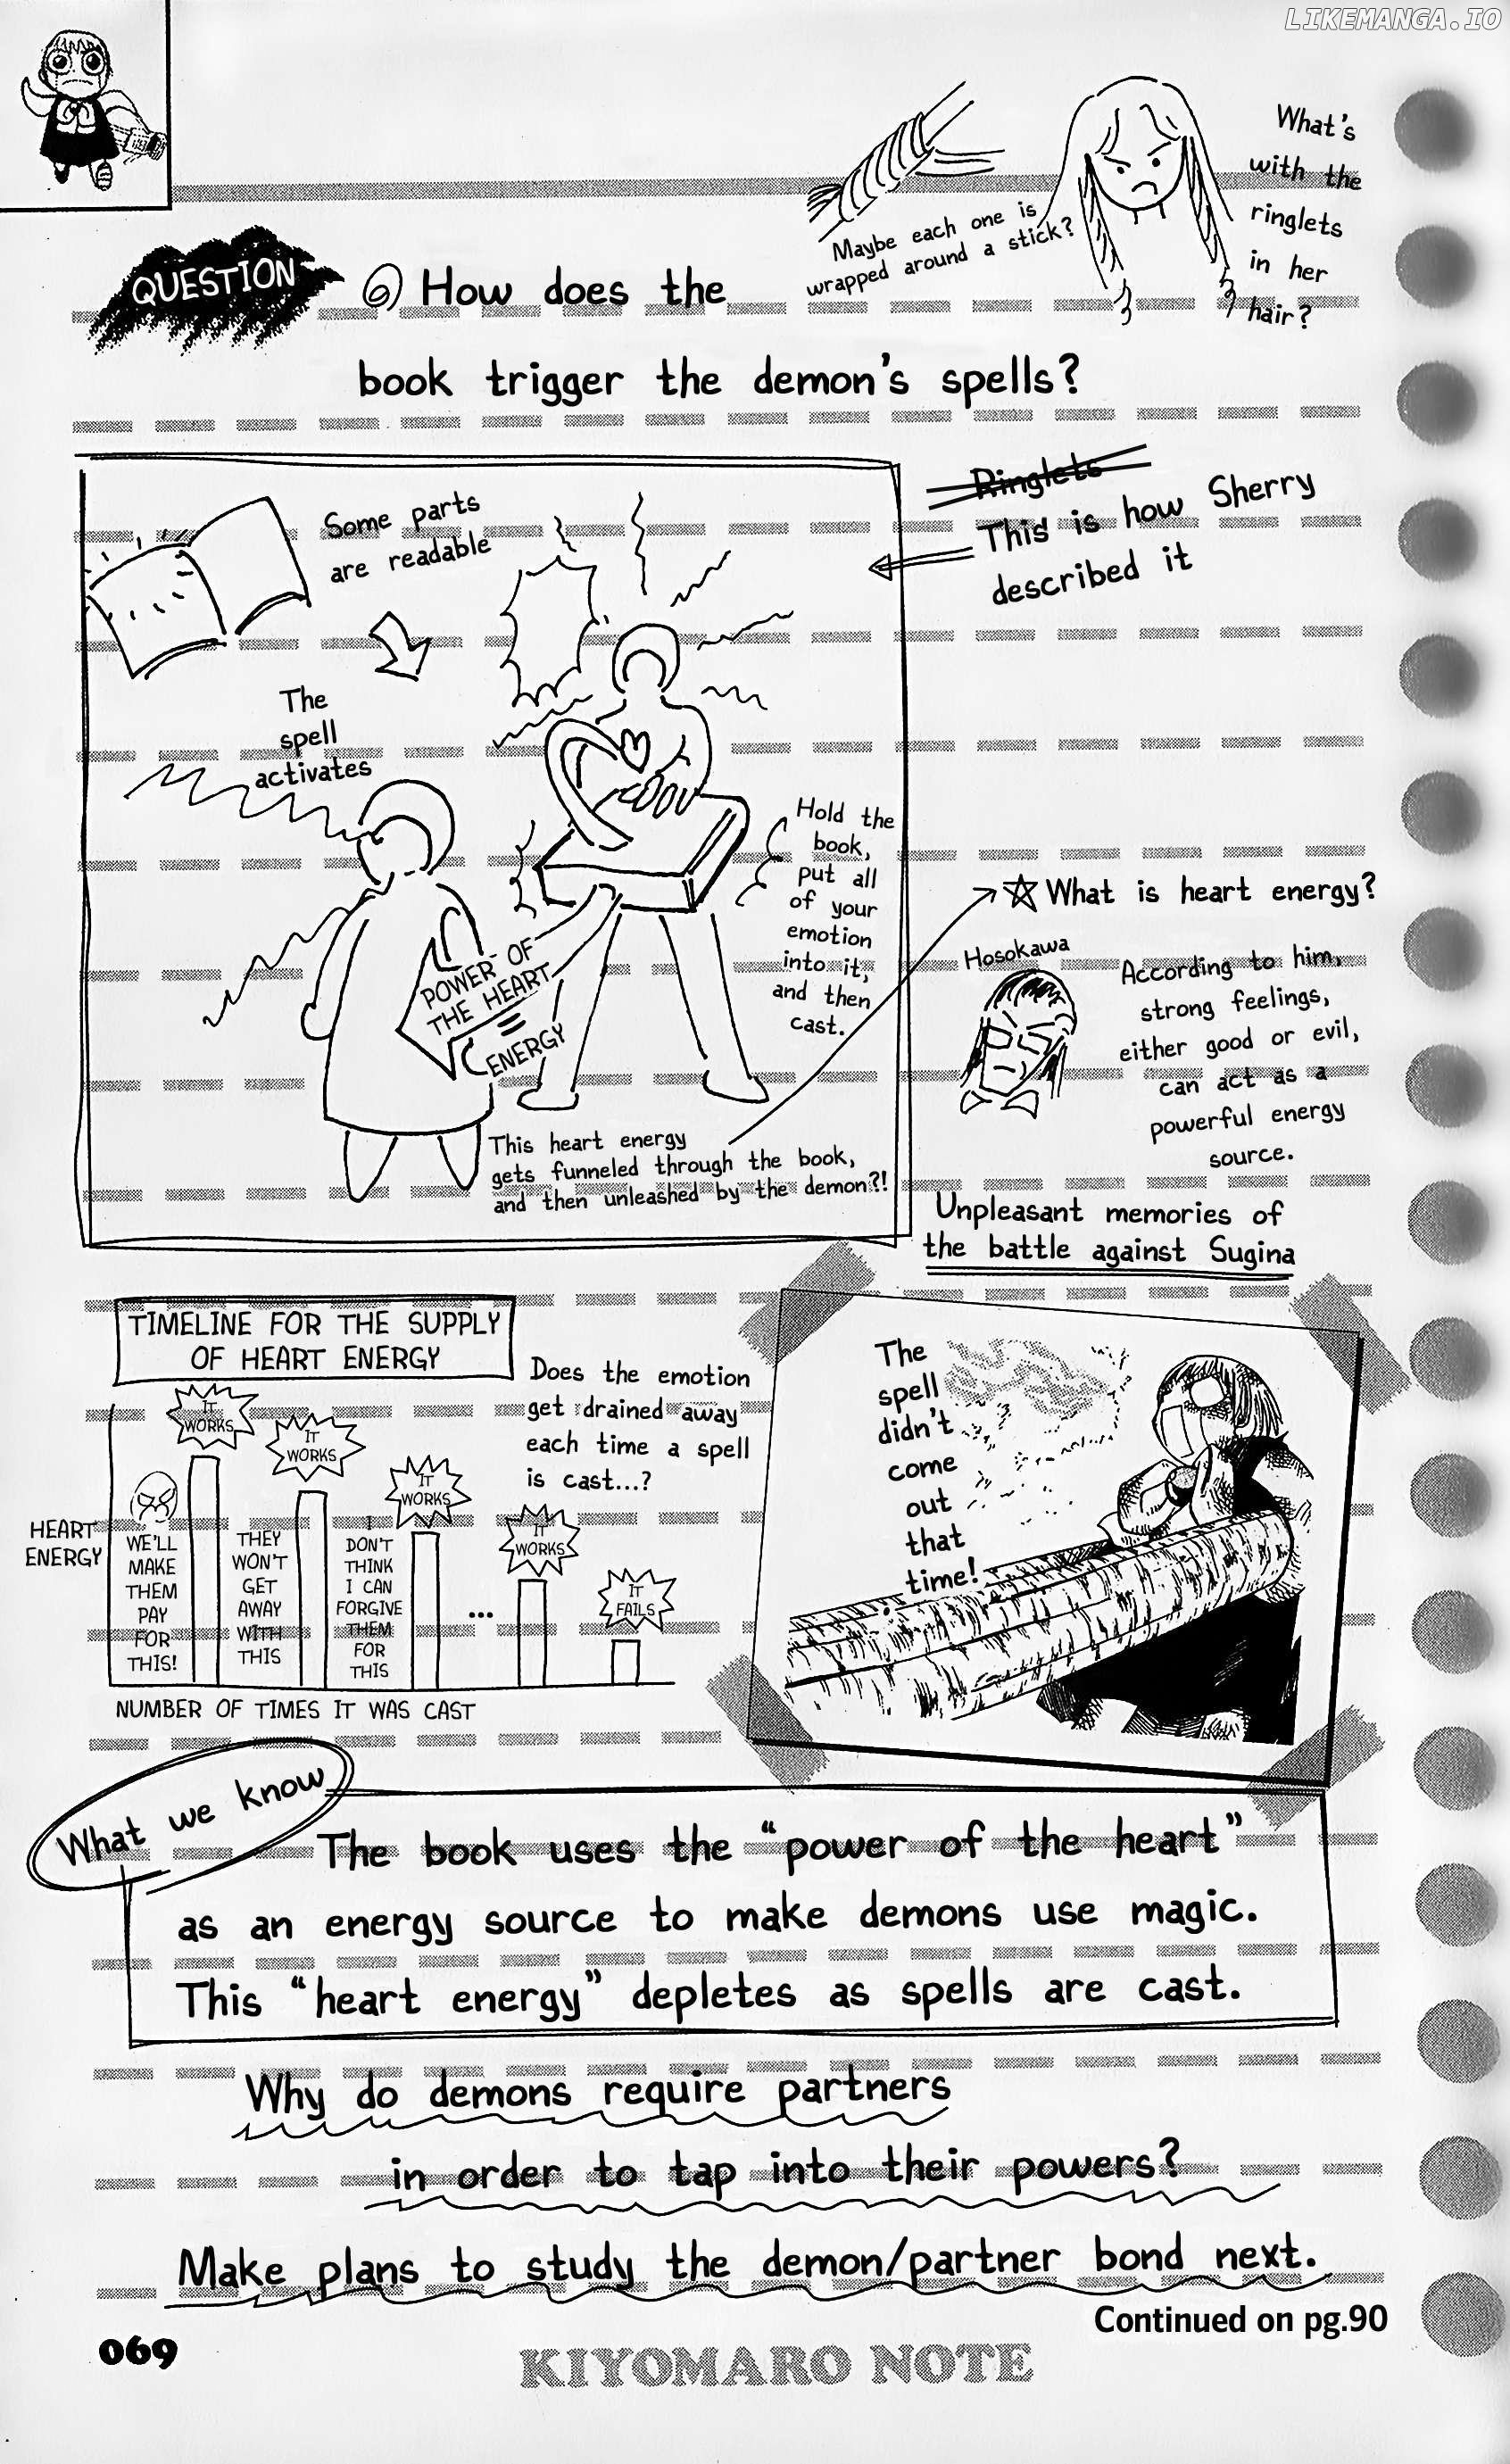 LIKEMANGA.IO
What's
with the
ringlets
in her
hair?
Maybe each one is
wrapped around a stick?
QUESTION
⑥ How does the
book trigger the demon's spells?
Some parts
are readable
Ringlets
This is how Sherry
described it
The
spell
activates
Hold the
book,
put all
of your
emotion
into it,
and then
cast.
POWER OF
THE HEART
=
ENERGY
This heart energy
gets funneled through the book,
and then unleashed by the demon?!
☆ What is heart energy?
Hosokawa
According to him,
strong feelings,
either good or evil,
can act as a
powerful energy
source.
Unpleasant memories of
the battle against Sugina
TIMELINE FOR THE SUPPLY
OF HEART ENERGY
Does the emotion
get drained away
each time a spell
is cast...?
HEART
ENERGY
IT
WORKS
IT
WORKS
IT
WORKS
IT
WORKS
IT
FAILS
WE'LL
MAKE
THEM
PAY
FOR
THIS!
THEY
WON'T
GET
AWAY
WITH
THIS
I
DON'T
THINK
I CAN
FORGIVE
THEM
FOR
THIS
...
NUMBER OF TIMES IT WAS CAST
The
spell
didn't
come
out
that
time!
What we know
The book uses the "power of the heart"
as an energy source to make demons use magic.
This "heart energy" depletes as spells are cast.
Why do demons require partners
in order to tap into their powers?
Make plans to study the demon/partner bond next.
Continued on pg.90
069
KIYOMARO NOTE